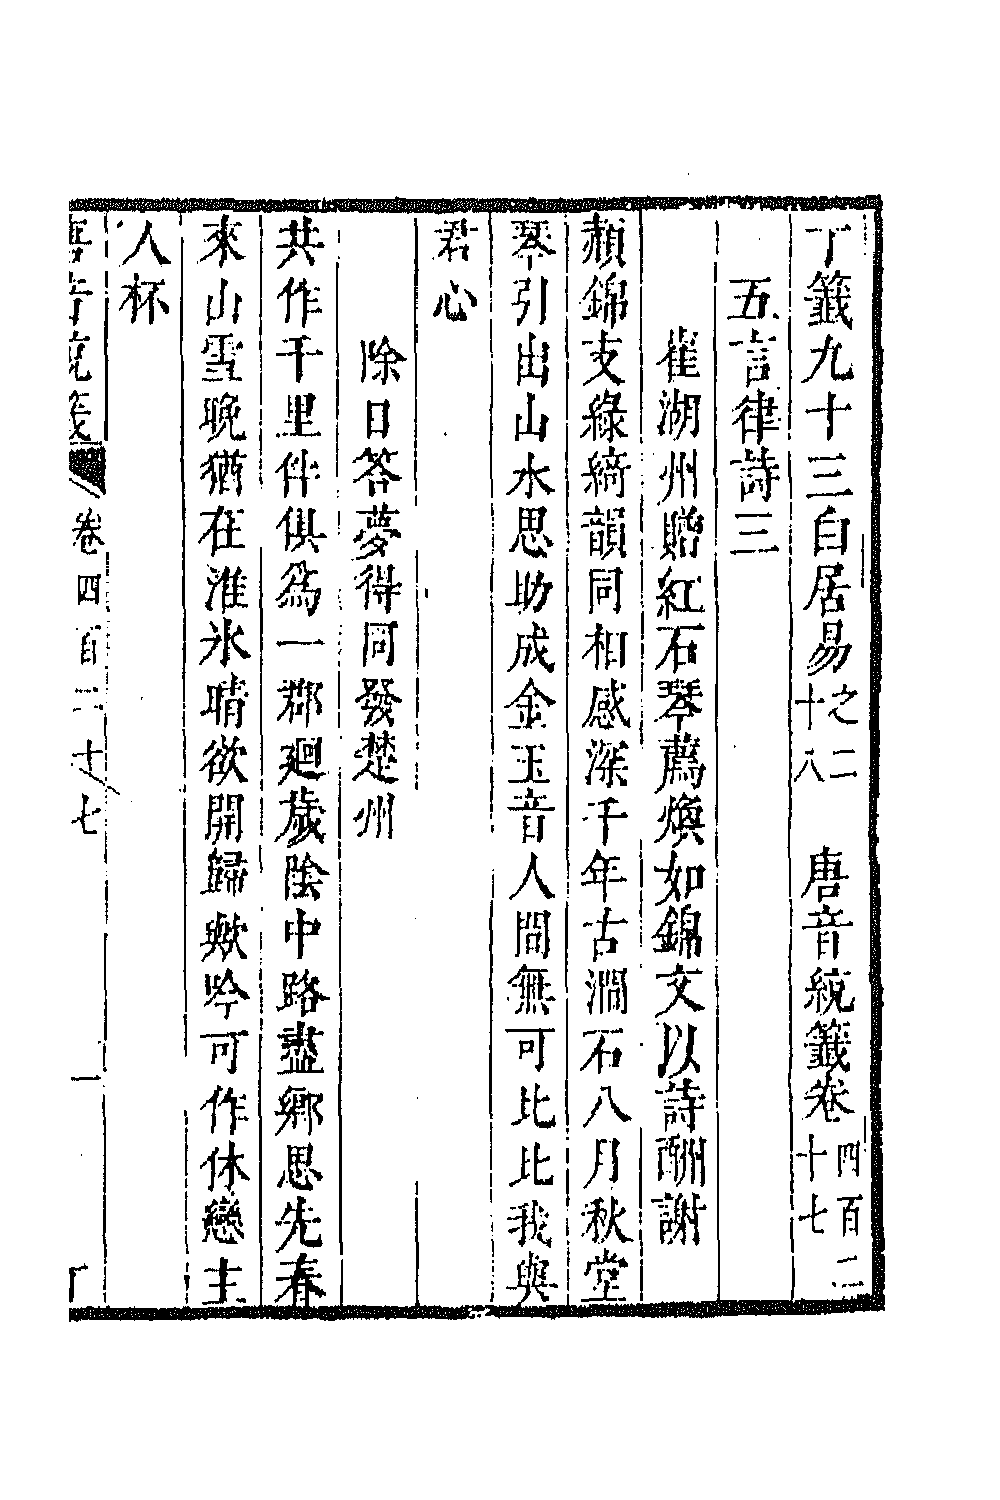 丁籤九十三白居易之二十八　唐音統籤卷四百二十七
五言律詩三
崔湖州贈紅石琴薦煥如錦文以詩酬謝
赬錦支綠綺韻同相感深千年古澗石八月秋堂
琴引出山水思助成金玉音人間無可比比我與
君心
除日答夢得同發楚州
共作千里伴俱為一郡廻歲陰中路盡鄉思先春
來山雪晚猶在淮氷晴欲開歸歟吟可作休戀主
人杯
唐音統籤　卷四百二十七　一　丁